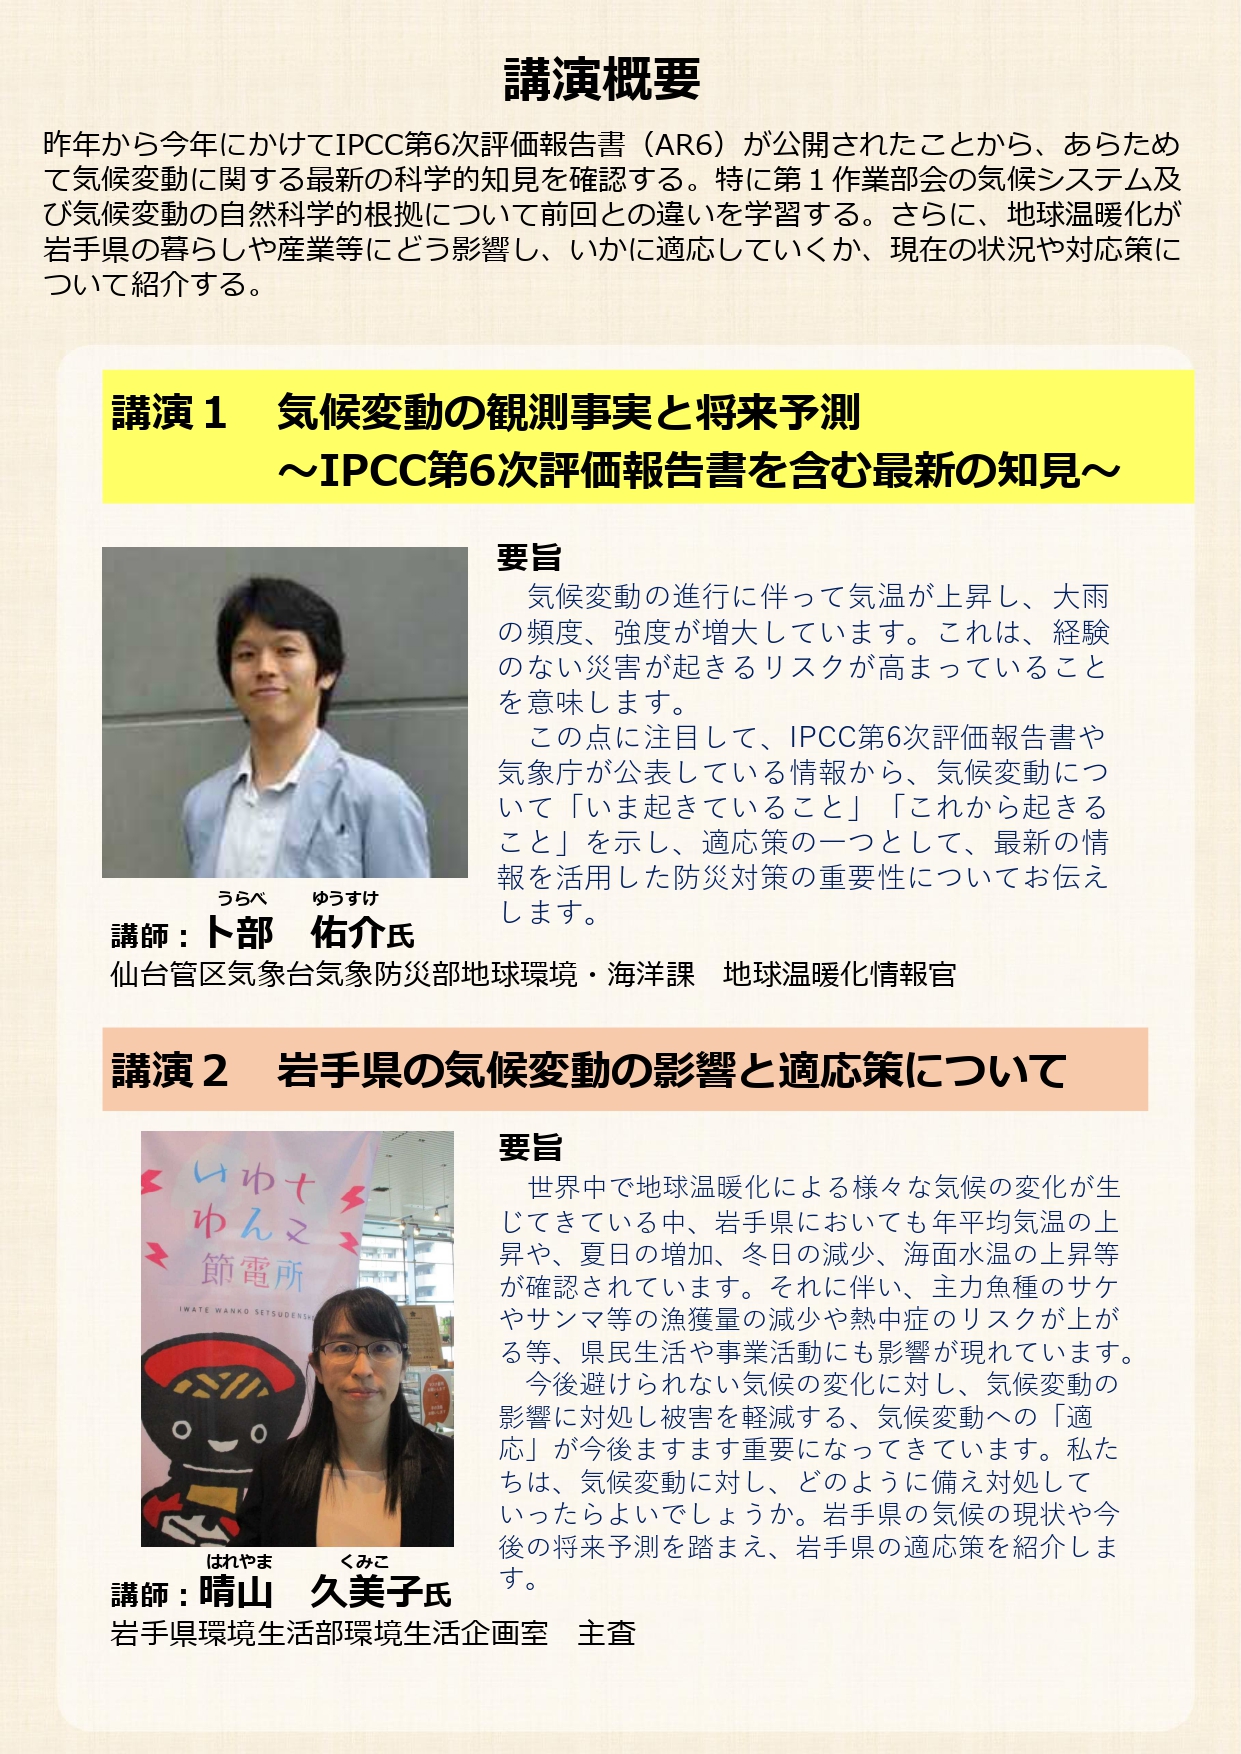 講演概要
昨年から今年にかけてIPCC第6次評価報告書（AR6）が公開されたことから、あらため
て気候変動に関する最新の科学的知見を確認する。特に第１作業部会の気候システム及
び気候変動の自然科学的根拠について前回との違いを学習する。さらに、地球温暖化が
岩手県の暮らしや産業等にどう影響し、いかに適応していくか、現在の状況や対応策に
ついて紹介する。
講演１　気候変動の観測事実と将来予測
～IPCC第6次評価報告書を含む最新の知見～
要旨
　気候変動の進行に伴って気温が上昇し、大雨
の頻度、強度が増大しています。これは、経験
のない災害が起きるリスクが高まっていること
を意味します。
　この点に注目して、IPCC第6次評価報告書や
気象庁が公表している情報から、気候変動につ
いて「いま起きていること」「これから起きる
こと」を示し、適応策の一つとして、最新の情
報を活用した防災対策の重要性についてお伝え
します。
うらべ　ゆうすけ
講師：卜部　佑介氏
仙台管区気象台気象防災部地球環境・海洋課　地球温暖化情報官
講演２　岩手県の気候変動の影響と適応策について
いわて
わんこ
節電所
IWATE WANKO SETSUDENSH
要旨
　世界中で地球温暖化による様々な気候の変化が生
じてきている中、岩手県においても年平均気温の上
昇や、夏日の増加、冬日の減少、海面水温の上昇等
が確認されています。それに伴い、主力魚種のサケ
やサンマ等の漁獲量の減少や熱中症のリスクが上が
る等、県民生活や事業活動にも影響が現れています。
　今後避けられない気候の変化に対し、気候変動の
影響に対処し被害を軽減する、気候変動への「適
応」が今後ますます重要になってきています。私た
ちは、気候変動に対し、どのように備え対処して
いったらよいでしょうか。岩手県の気候の現状や今
後の将来予測を踏まえ、岩手県の適応策を紹介しま
す。
はれやま　くみこ
講師：晴山　久美子氏
岩手県環境生活部環境生活企画室　主査